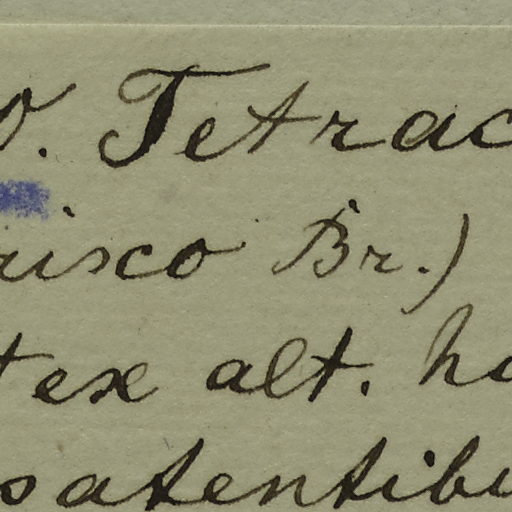 O. Tetrac
risco Br.)
tex alt. ha
patentibu